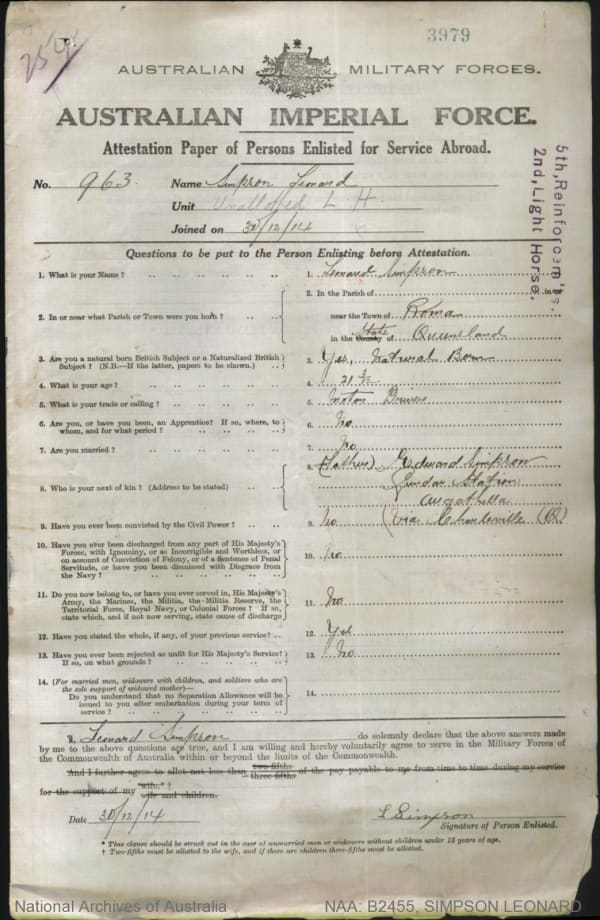 254
3979
AUSTRALIAN MILITARY FORCES.
AUSTRALIAN IMPERIAL FORCE.
Attestation Paper of Persons Enlisted for Service Abroad.
5th, Reinforcem'ts.
2nd, Light Horse.
No. 963 Name Simpson Leonard
Unit Unallotted L H
Joined on 30/12/14
Questions to be put to the Person Enlisting before Attestation.
1. What is your Name? .. .. .. .. .. 1. Leonard Simpson
2. In or near what Parish or Town were you born? .. 2. In the Parish of in or
near the Town of Roma
in the County State of Queensland
3. Are you a natural born British Subject or a Naturalized British
Subject? (N.B.—If the latter, papers to be shown.) .. 3. Yes, Natural Born
4. What is your age? .. .. .. .. .. 4. 21
5. What is your trade or calling? .. .. .. .. 5. Motor Driver
6. Are you, or have you been, an Apprentice? If so, where, to
whom, and for what period? .. .. .. .. 6. No
7. Are you married? .. .. .. .. .. 7. No
8. Who is your next of kin? (Address to be stated) .. .. 8. (Father) Edward Simpson
Station
Augathella
(Via Charleville (Q)
9. Have you ever been convicted by the Civil Power? .. .. 9. No
10. Have you ever been discharged from any part of His Majesty's
Forces, with Ignominy, or as Incorrigible and Worthless, or
on account of Conviction of Felony, or of a Sentence of Penal
Servitude, or have you been dismissed with Disgrace from
the Navy? .. .. .. .. .. 10. No
11. Do you now belong to, or have you ever served in, His Majesty's
Army, the Marines, the Militia, the Militia Reserve, the
Territorial Force, Royal Navy, or Colonial Forces? If so,
state which, and if not now serving, state cause of discharge 11. No
12. Have you stated the whole, if any, of your previous service? .. 12. Yes
13. Have you ever been rejected as unfit for His Majesty's Service?
If so, on what grounds? .. .. .. .. 13. No
14. (For married men, widowers with children, and soldiers who are
the sole support of widowed mother)—
Do you understand that no Separation Allowance will be
issued to you after embarkation during your term of
service? .. .. .. .. .. 14.
I, Leonard Simpson do solemnly declare that the above answers made
by me to the above questions are true, and I am willing and hereby voluntarily agree to serve in the Military Forces of
the Commonwealth of Australia within or beyond the limits of the Commonwealth.
And I further agree to allot not less than two-fifths three-fifths of the pay payable to me from time to time during my service
for the support of my wife.* † wife and children.
Date 30/12/14 L Simpson
Signature of Person Enlisted.
* This clause should be struck out in the case of unmarried men or widowers without children under 18 years of age.
† Two-fifths must be allotted to the wife, and if there are children three-fifths must be allotted.
National Archives of Australia NAA: B2455, SIMPSON LEONARD